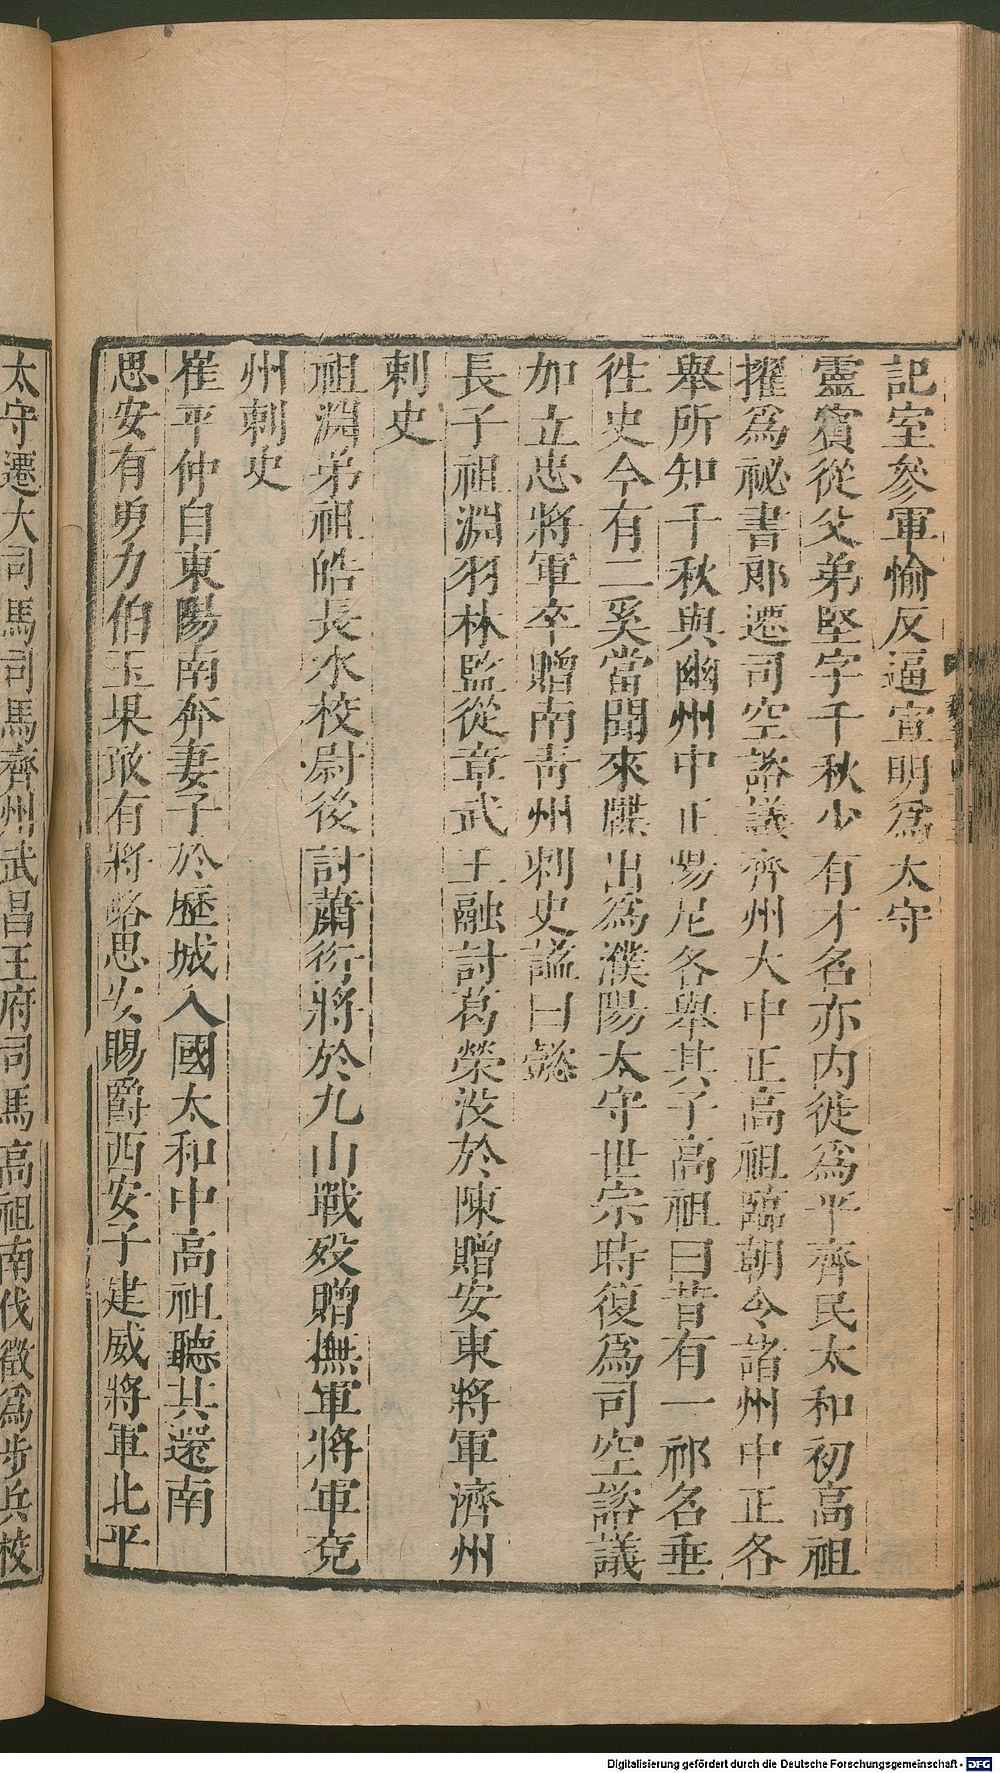 記室參軍愉反逼宣明爲太守
靈賓從父弟堅字千秋少有才名亦内徙爲平齊民太和初高祖
擢爲祕書郎遷司空諮議齊州大中正高祖臨朝令諸州中正各
舉所知千秋與幽州中正陽尼各舉其子高祖曰昔有一祁名垂
徃史今有二奚當聞來牒出爲濮陽太守世宗時復爲司空諮議
加立忠將軍卒贈南青州刺史謚曰懿
長子祖淵羽林監從章武王融討葛榮没於陳贈安東將軍濟州
刺史
祖淵弟祖皓長水校尉後討蕭衍將於九山戰殁贈撫軍將軍兗
州刺史
崔平仲自東陽南奔妻子於歷城入國太和中高祖聽其還南
思安有勇力伯玉果敢有將略思安賜爵西安子建威將軍北平
太守遷大司馬司馬齊州武昌王府司馬高祖南伐徵爲步兵校
Digitalisierung gefördert durch die Deutsche Forschungsgemeinschaft - DFG